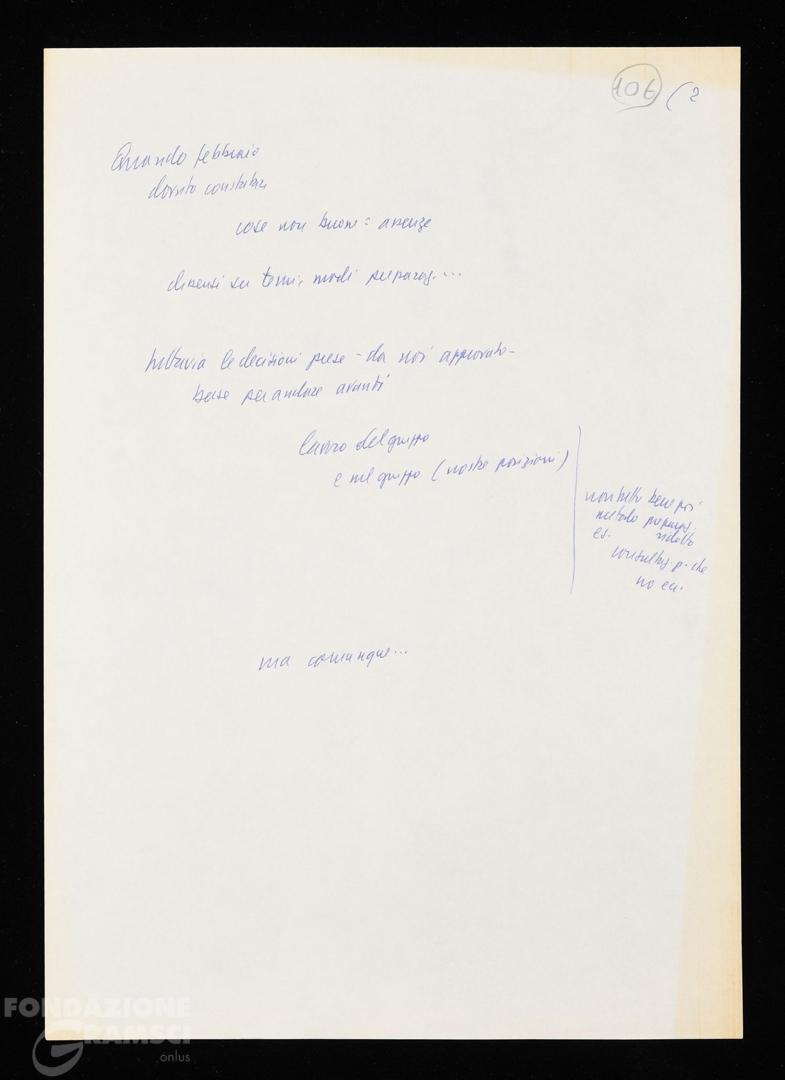 106 (2
Quando febbraio
dovuto constatare
cose non buone = assenze
dissensi su temi, modi preparaz. ...
tuttavia le decisioni prese - da noi approvate -
base per andare avanti
lavoro del gruppo
e nel gruppo (nostre posizioni)
non tutto bene poi
metodo preparaz.
es. ridotto
consultaz. p. che
no ec.
ma comunque...
FONDAZIONE
GRAMSCI
onlus